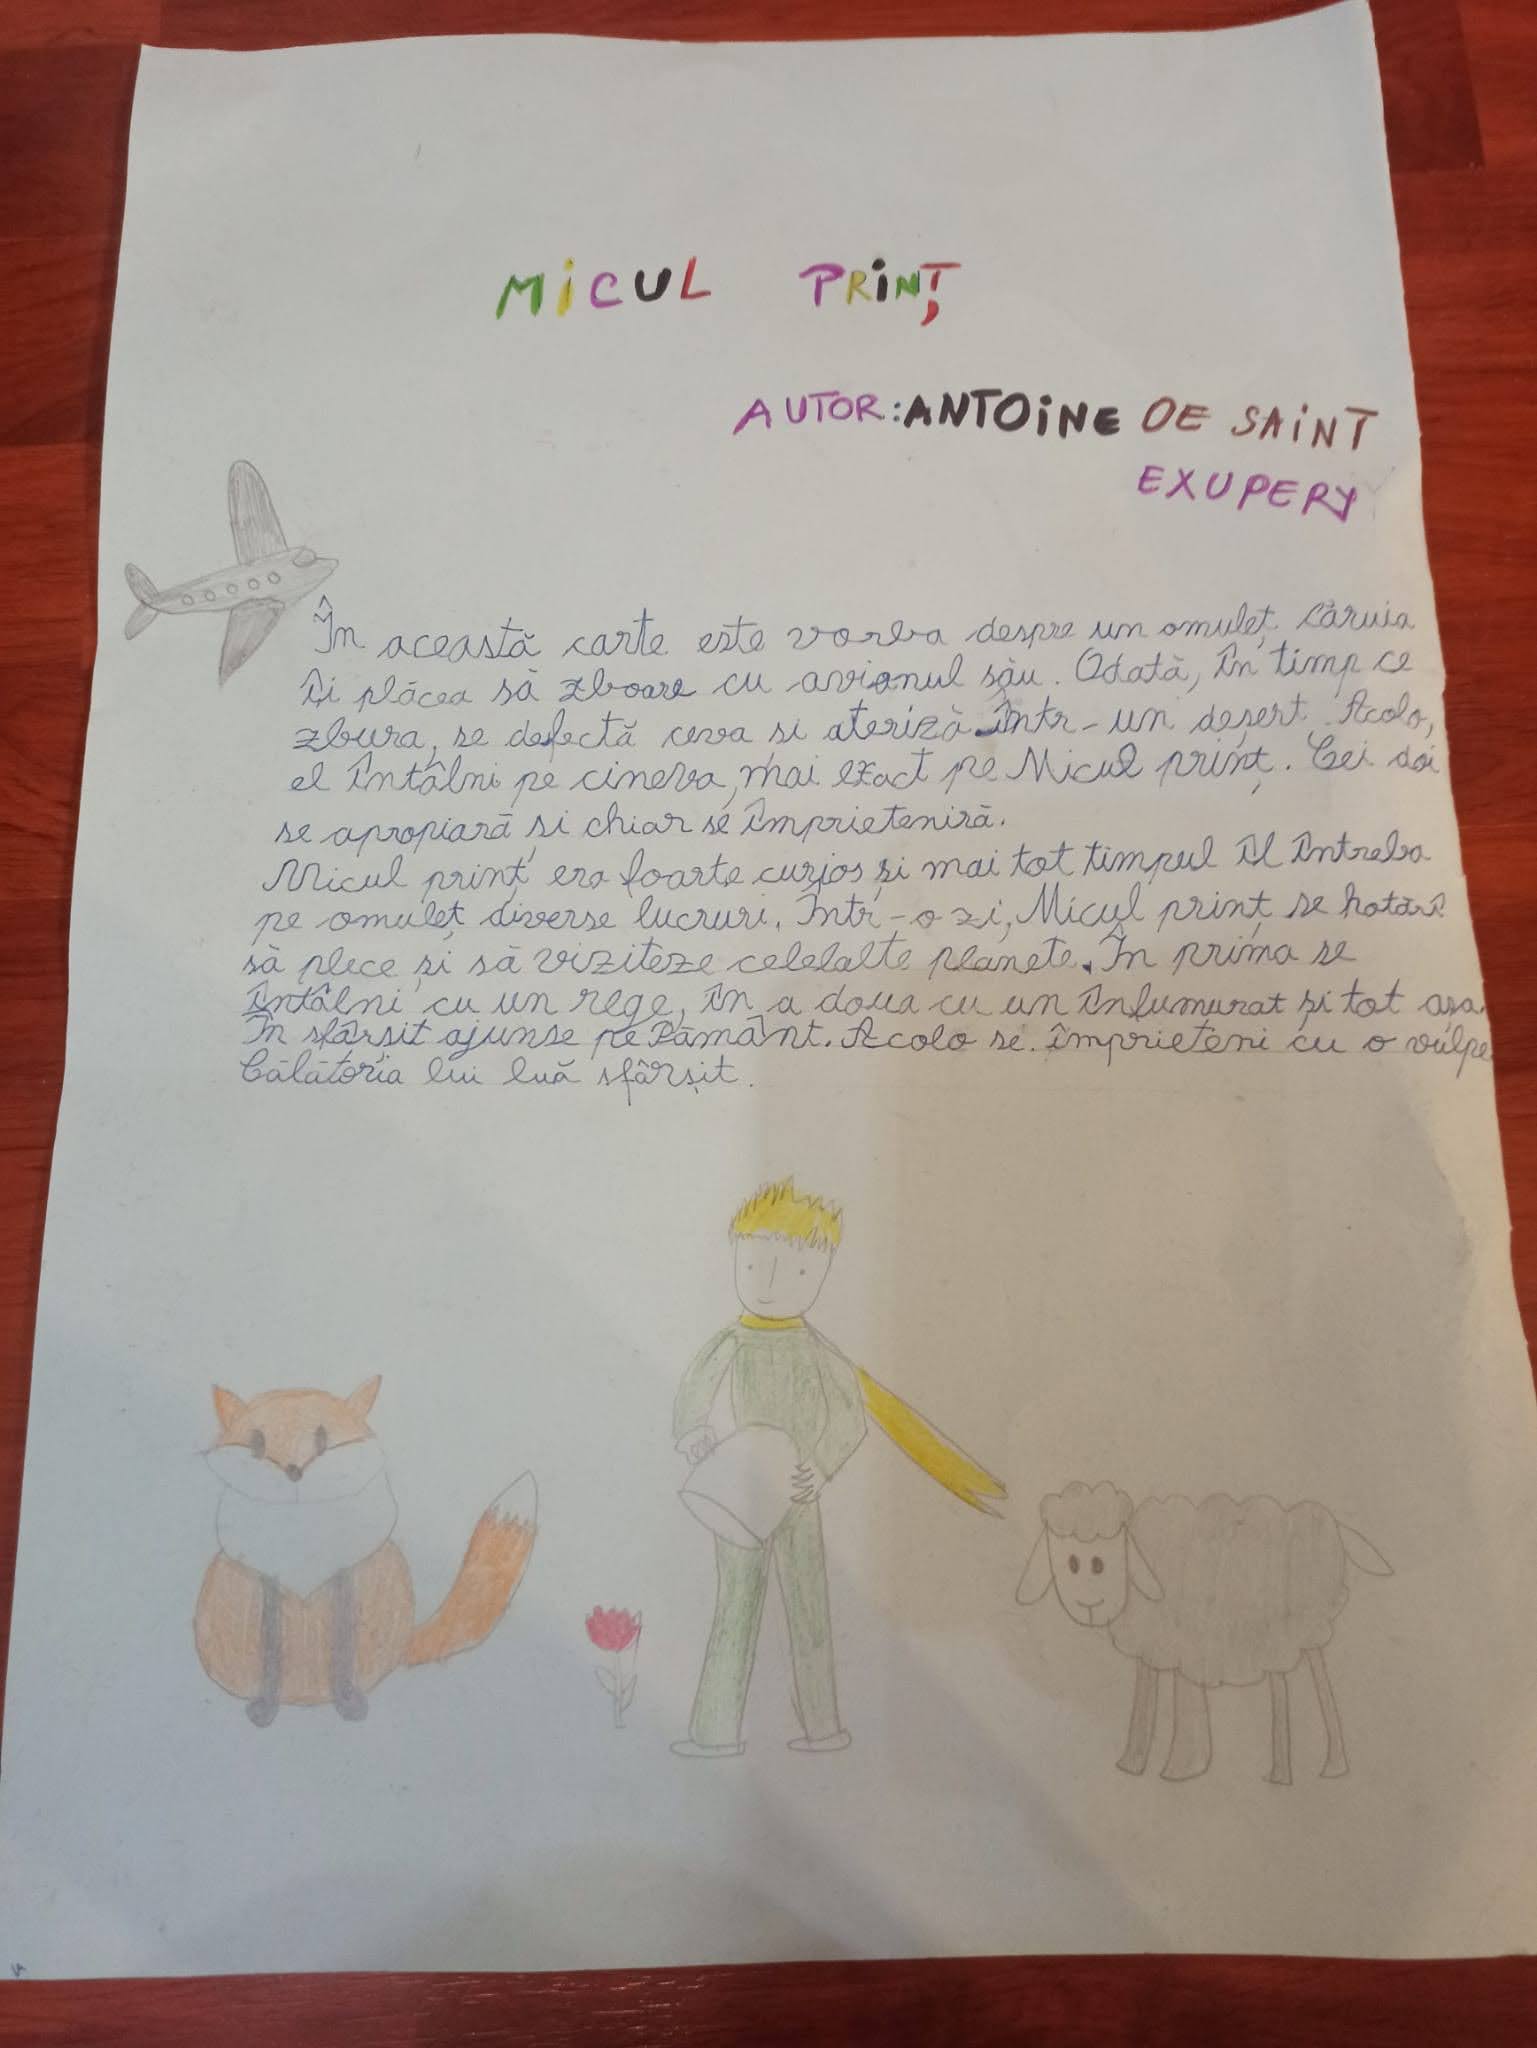 MiCUL PRiNȚ
AUTOR: ANTOiNE DE SAiNT
EXUPERY
În această carte este vorba despre un omuleț căruia
îi plăcea să zboare cu avionul său. Odată, în timp ce
zbura, se defectă ceva si ateriză într-un deșert. Acolo,
el întâlni pe cineva, mai exact pe Micul prinț. Cei doi
se apropiară și chiar se împrieteniră.
Micul prinț era foarte curios și mai tot timpul îl întreba
pe omuleț diverse lucruri. Într-o zi, Micul prinț se hotărî
să plece și să viziteze celelalte planete. În prima se
întâlni cu un rege, în a doua cu un înfumurat și tot așa.
În sfârșit ajunse pe Pământ. Acolo se împrieteni cu o vulpe
Călătoria lui luă sfârșit.